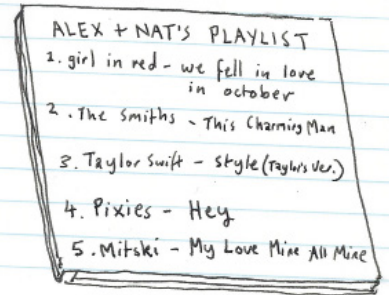 ALEX + NAT'S PLAYLIST
1. girl in red - we fell in love
in october
2. The Smiths - This Charming Man
3. Taylor Swift - Style (Taylor's Ver.)
4. Pixies - Hey
5. Mitski - My Love Mine All Mine